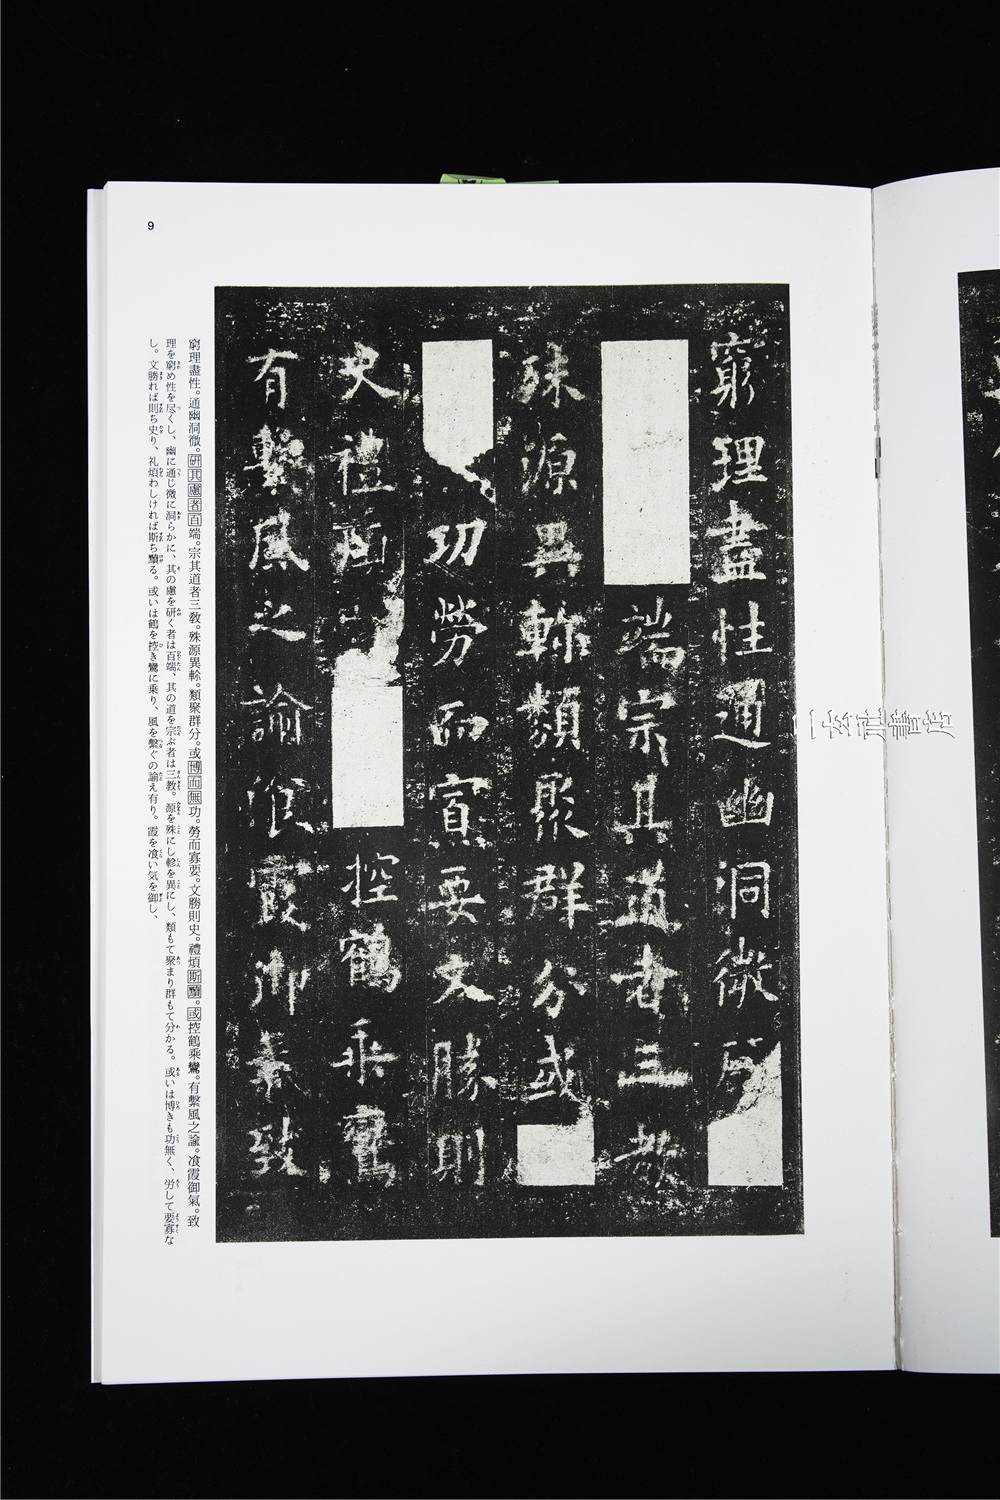 9
窮理盡性通幽洞微研
端宗其道者三教
殊源異軫類聚群分或
功勞而寡要文勝則
史禮煩控鶴乗鸞
有繫風之諭飡霞御氣致
窮理盡性。通幽洞微。研其慮者百端。宗其道者三教。殊源異軫。類聚群分。或博而無功。勞而寡要。文勝則史。禮煩斯黷。或控鶴乘鸞。有繫風之諭。飡霞御氣。致
理を窮め性を尽くし、幽に通じ微に洞らかに、其の慮を研く者は百端、其の道を宗ぶ者は三教。源を殊にし軫を異にし、類もて聚まり群もて分かる。或いは博きも功無く、労して要寡な
し。文勝れば則ち史り、礼煩わしければ斯ち黷る。或いは鶴を控き鸞に乗り、風を繫ぐの諭え有り。霞を飡い気を御し、